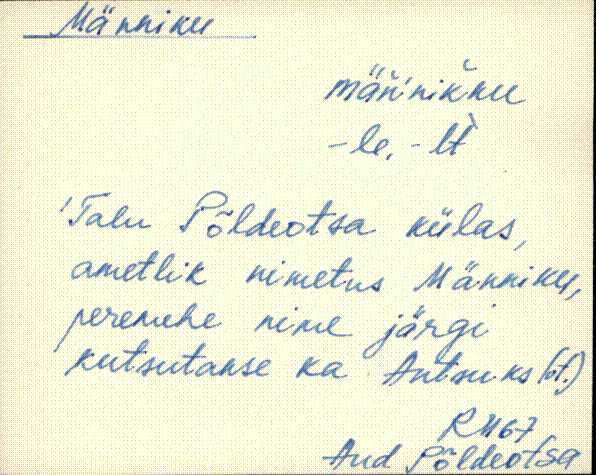 Männiku
männikku
-le, -lt
'Talu Põldeotsa külas,
ametlik nimetus Männiku,
peremehe nime järgi
kutsutakse ka Antsuks (vt.)
RM 67
Aud Põldeotsa